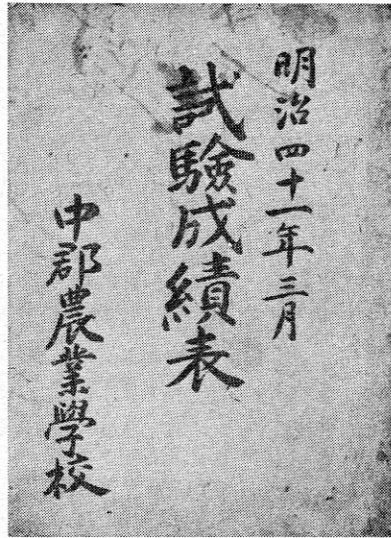 明治四十一年三月
試驗成績表
中郡農業學校